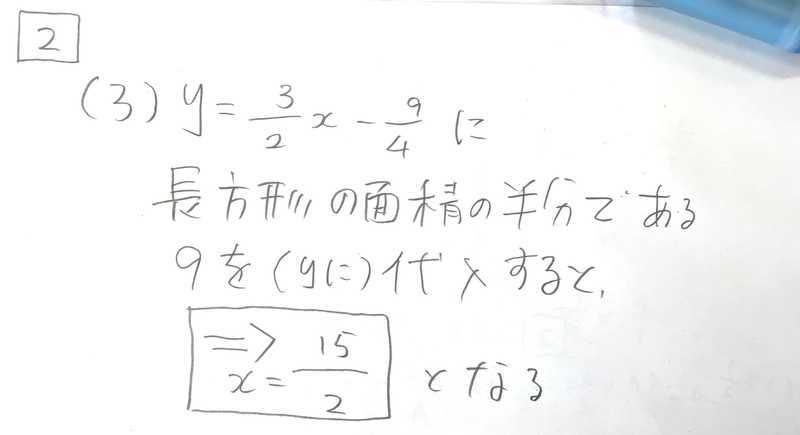 2
(3) y = 3/2 x - 9/4 に
長方形の面積の半分である
9を(yに)代入すると、
=> x = 15/2 となる